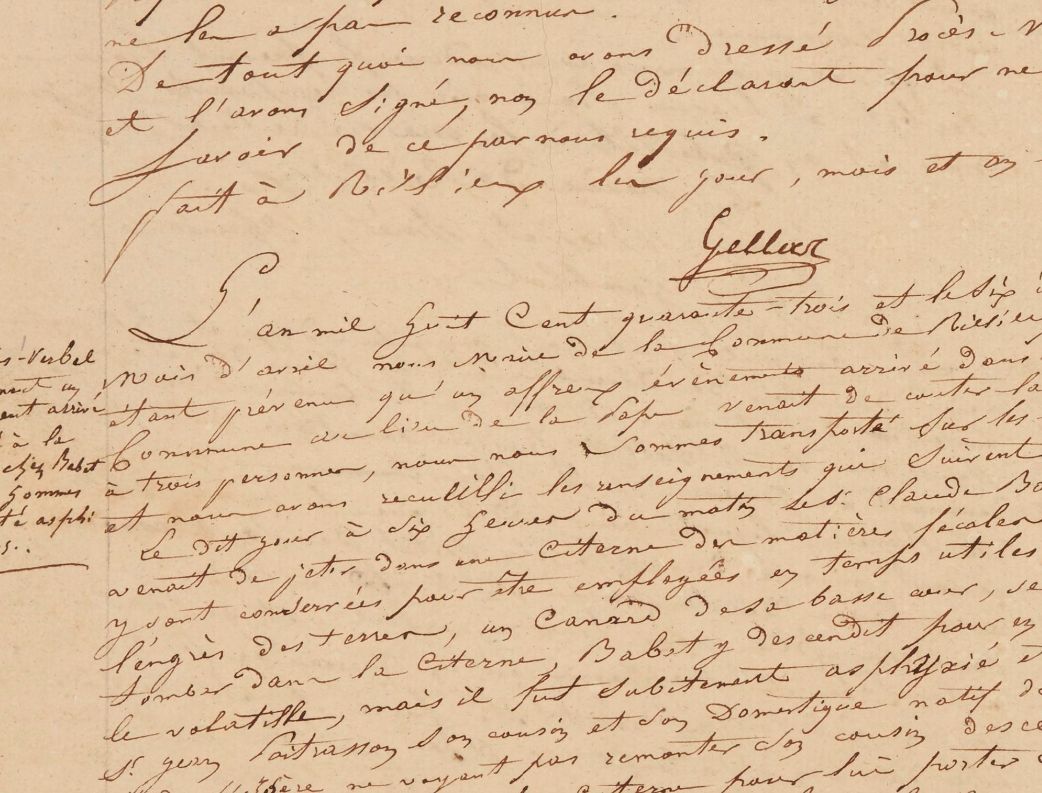 ne les a pas reconnus.
De tout quoi nous avons dressé Procès-v
et l'avons Signé, non le déclarant pour ne
savoir de ce par nous requis.
fait à Rillieux les jour, mois et an
L'an mil huit Cent quarante-trois et le Six
Mois d'avril nous Maire de la Commune de Rillieu
étant prévenu qu'un affreux évènements arrivé dans
Commune au lieu de la Pape venait de couter la
à trois personnes, nous nous Sommes transporté Sur les
et nous avons recueilli les renseignements qui Suivent
Le dit jour à Six heures du matin le Sr. Claude Ba
venait de jeter dans une Citerne des matières fécales
y sont conservées pour être employées en temps utiles
l'engrès des terres, un Canard de sa basse cour, se
tomber dans la Citerne, Babet y descendit pour en
le volatille, mais il fut Subitement asphyxié et
Sr. Son cousin et Son Domestique natif de
ne voyant pas remonter Son cousin desce
Citerne pour lui porter
s-Verbal
nant un
ent arrivé
à la
chez Babet
hommes
té asphi
s..